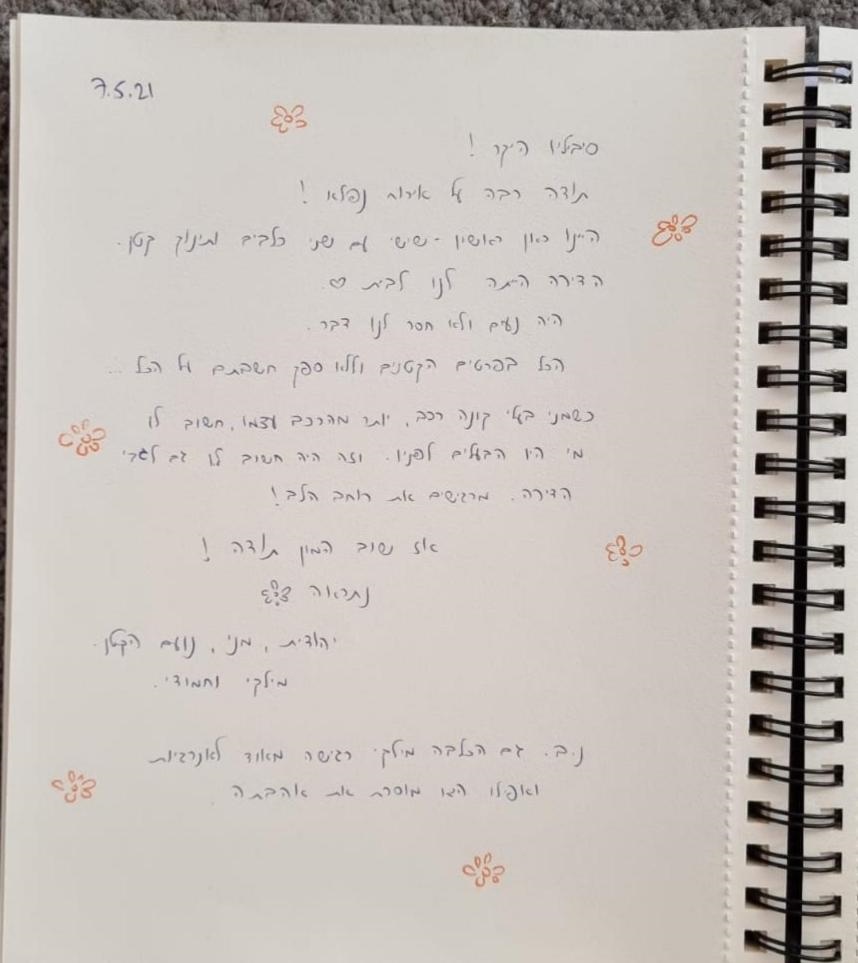 7.5.21
סיבליו היקר !
תודה רבה על אירוח נפלא !
היינו כאן ראשון - שישי עם שני כלבים ותינוק קטן.
הדירה הייתה לנו לבית ♡.
היה נעים ולא חסר לנו דבר.
הכל בפרטים הקטנים וללא ספק חשבתם על הכל ...
כשמני בעלי קונה רכב, יותר מהרכב עצמו, חשוב לו
מי היו הבעלים לפניו. וזה היה חשוב לו גם לגבי
הדירה. מרגישים את רוחב הלב!
אז שוב המון תודה !
נתראה
יהודית, מני, נועם הקטן.
מילקי וחמודי.
נ.ב. גם הכלבה מילקי רגישה מאוד לאנרגיות
ואפילו מוסרת את אהבתה